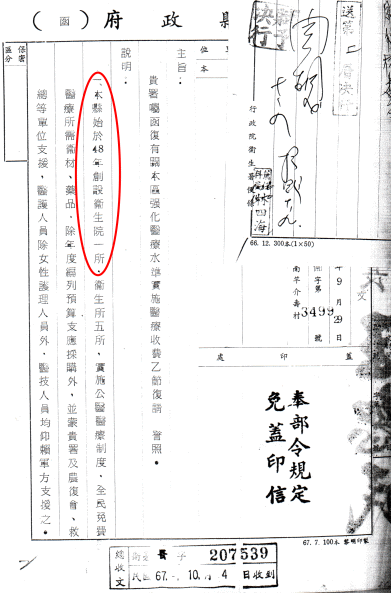 縣政府(函)
位單
本
主旨:
貴署囑函復有關本區強化醫療水準實施醫療收費乙節復請 查照。
說明:
一、本縣始於48年創設衛生院一所,衛生所五所,實施公醫醫療制度,全民免費
醫療所需衛材、藥品,除年度經列預算支應採購外,並蒙貴署及農復會、救
總等單位支援,醫護人員除女性護理人員外,醫技人員均仰賴軍方支援之。
保密
區分
決行
行政院衛生署
66. 12. 300本(1×50)
年9月29日
字第3499號
南竿介壽村
文
處 印 蓋
奉部令規定
免蓋印信
67. 7. 100本 黎明印製
總收文
207539
民國 67. 10. 4 日收到